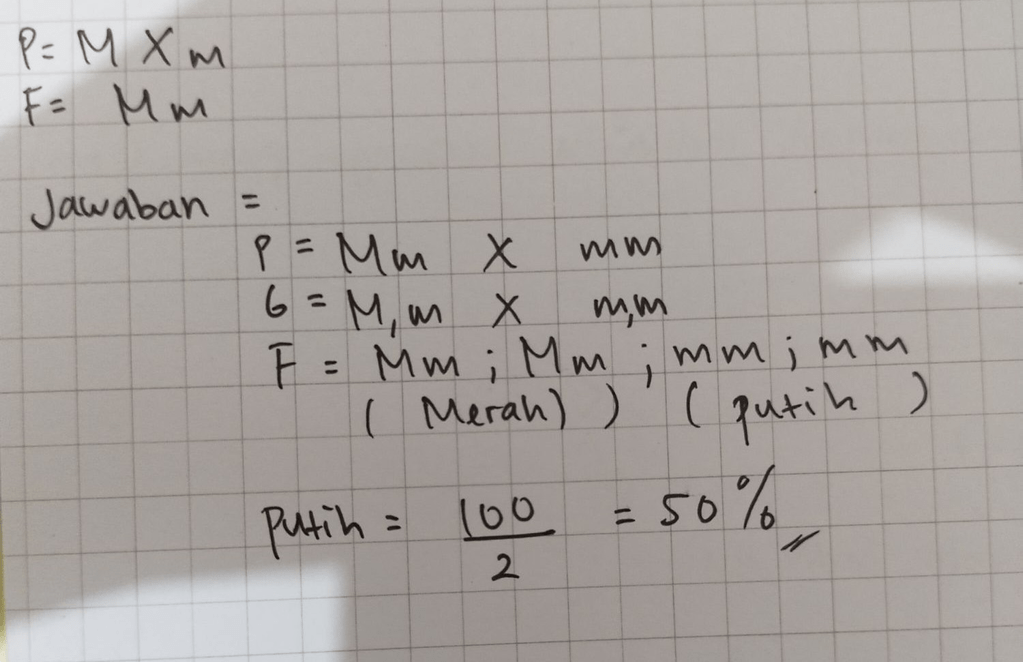 P= M X m
F= Mm
Jawaban =
P = Mm X mm
G = M,m X m,m
F = Mm ; Mm ; mm ; mm
( Merah) ) ( putih )
Putih = 100/2 = 50%